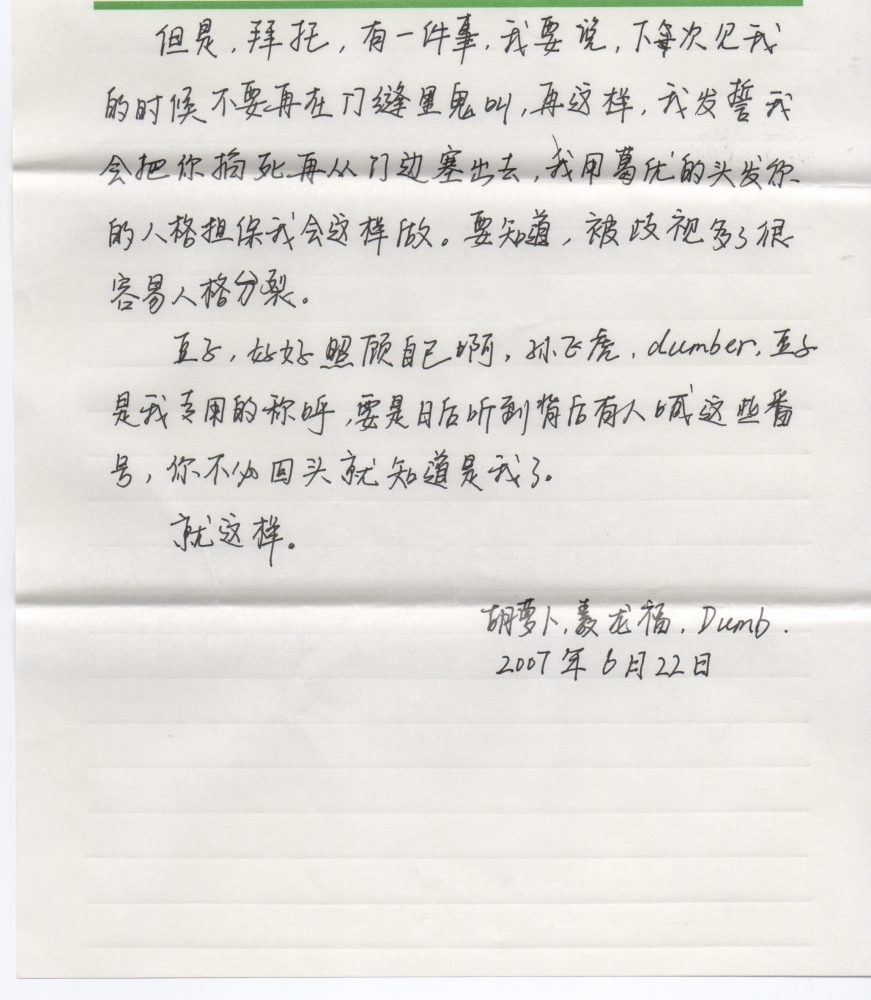 但是，拜托，有一件事，我要说，下每次见我
的时候不要再在门缝里鬼叫，再这样，我发誓我
会把你掐死再从门边塞出去，我用葛优的头发你
的人格担保我会这样做。要知道，被歧视多了很
容易人格分裂。
豆子，好好照顾自己啊，孙飞虎，dumber，豆子
是我专用的称呼，要是日后听到背后有人喊这些番
号，你不必回头就知道是我了。
就这样。
胡萝卜，龙福，Dumb.
2007年6月22日